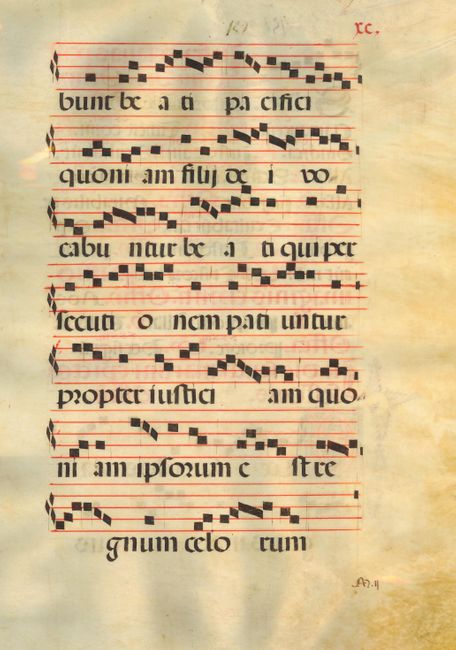 xc.
bunt be a ti pa cifici
quoni am filij de i vo
cabu ntur be a ti qui per
secuti o nem pati untur
propter iustici am quo
ni am ipsorum e st re
gnum celo rum